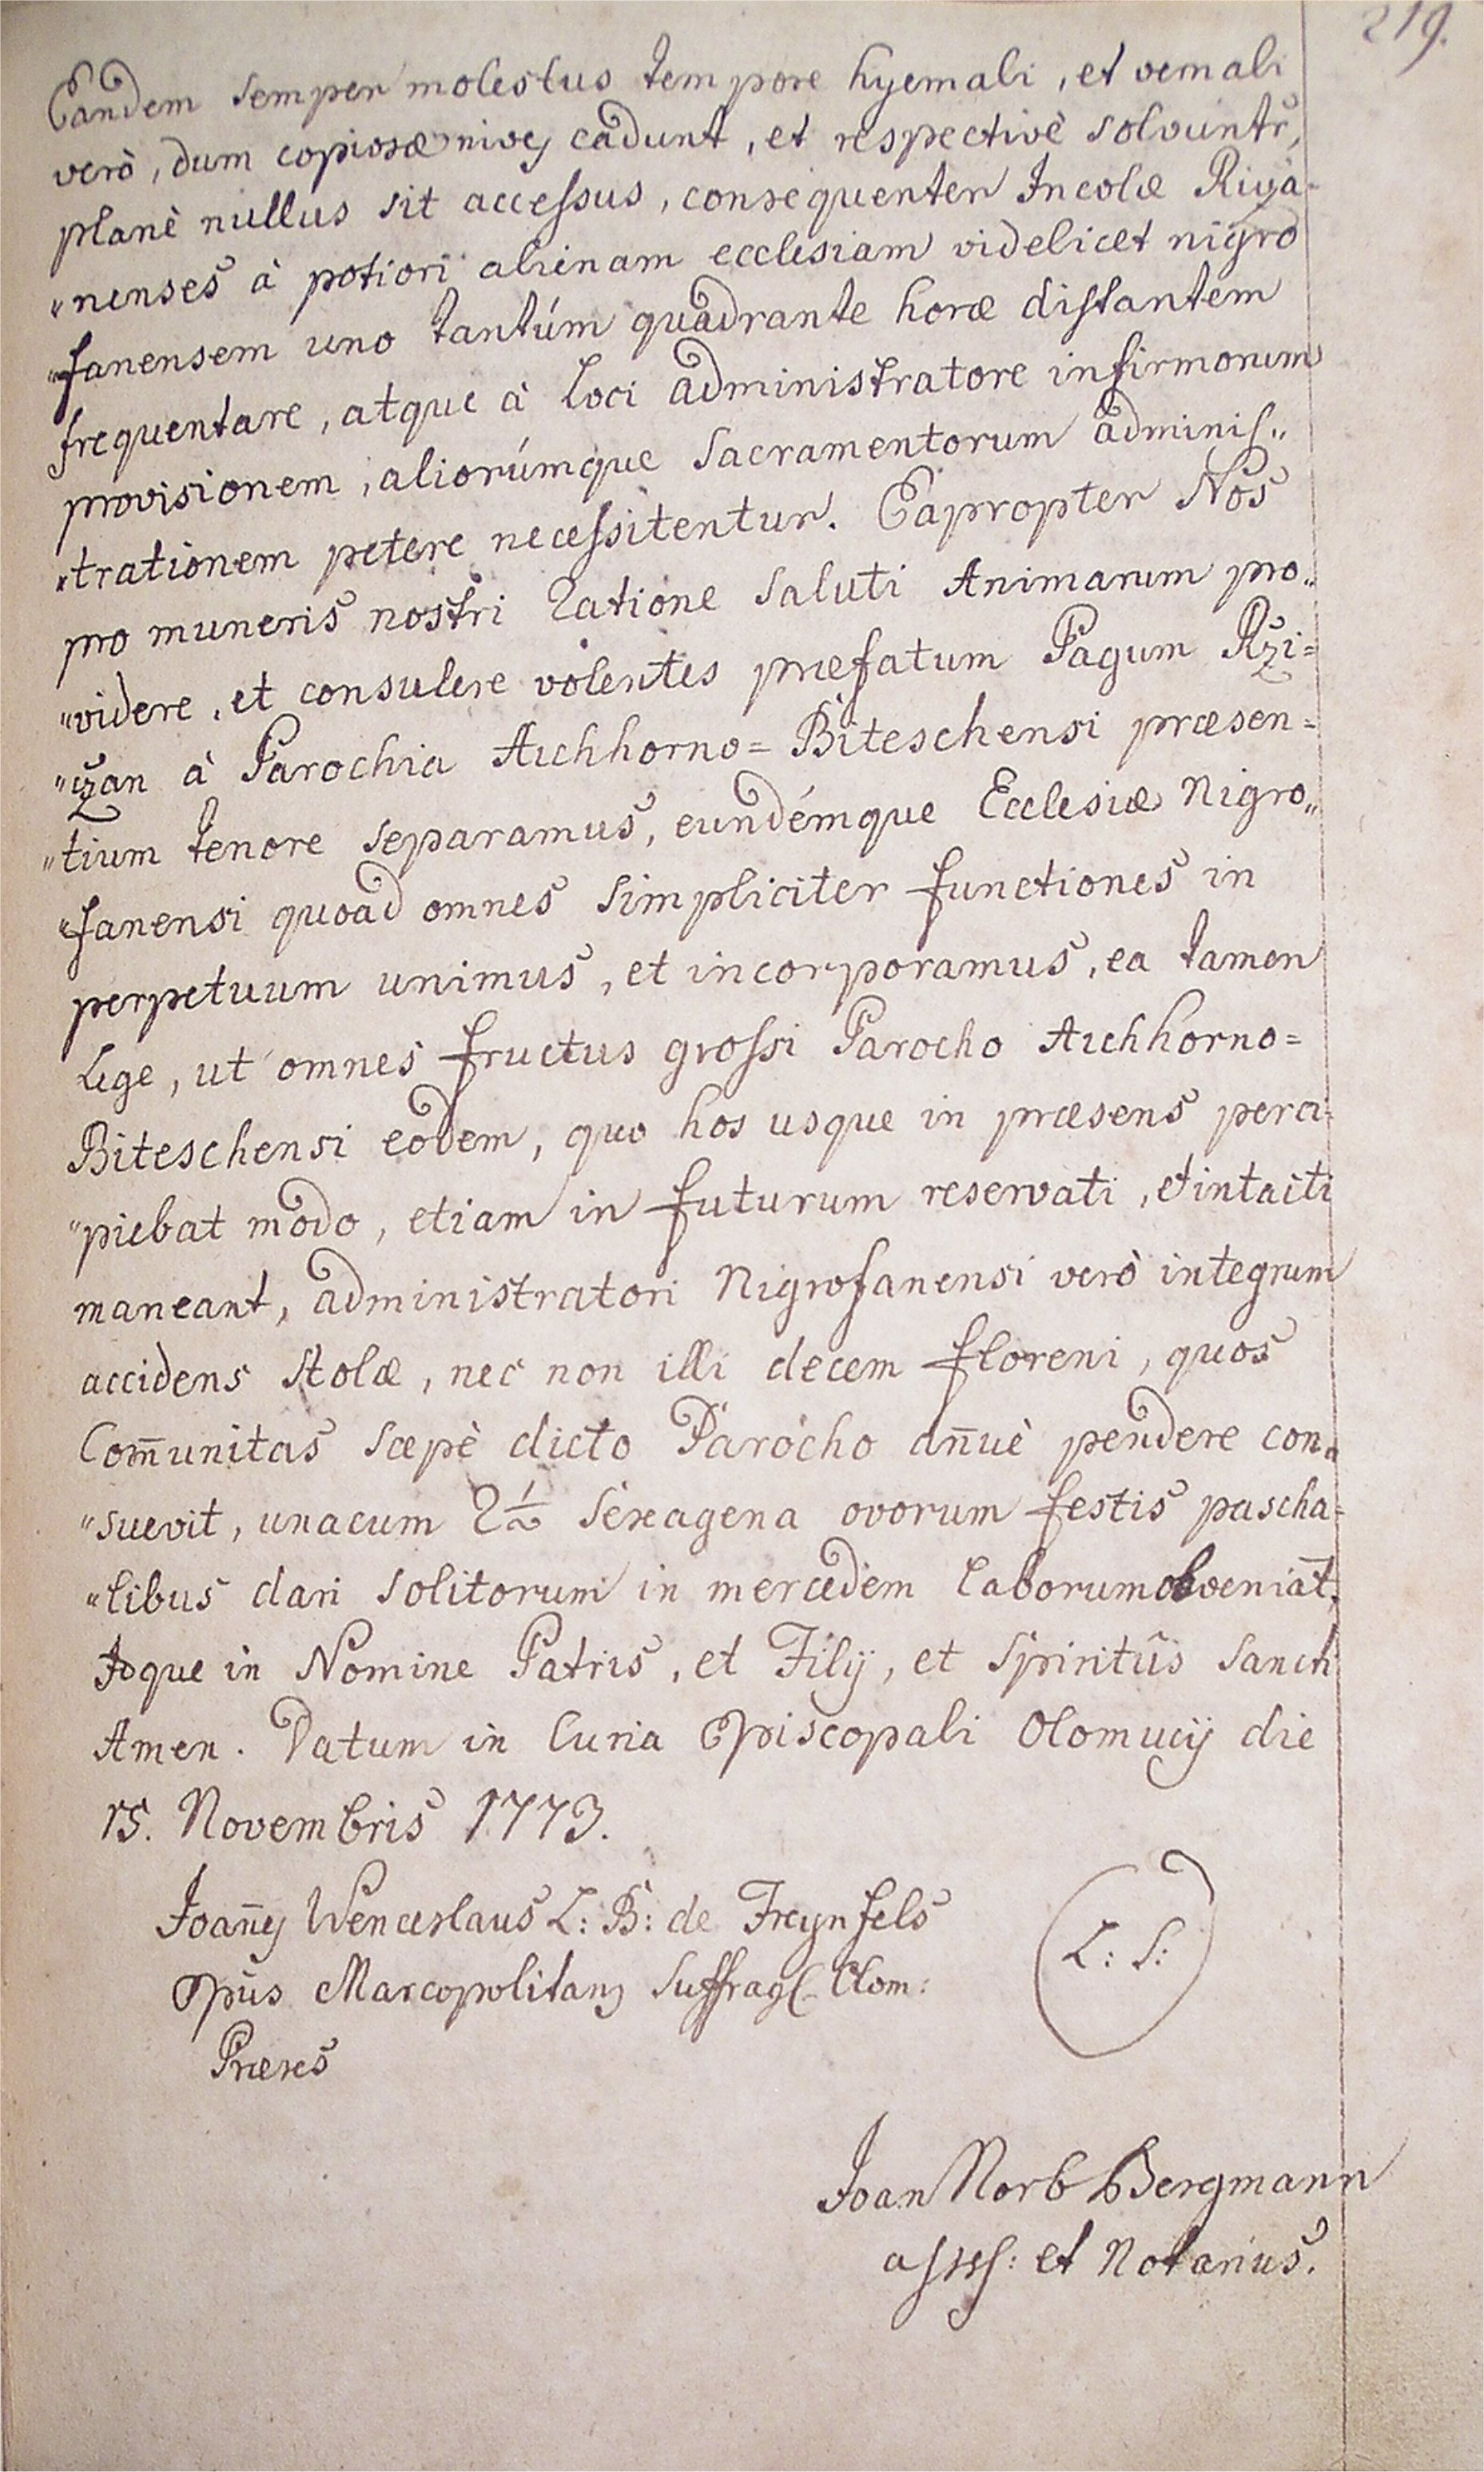 219.
Eandem semper molestus tempore hyemali, et vernali
verò, dum copiosæ nives cadunt, et respectivè solvuntr,
planè nullus sit accessus, consequenter Incolæ Riža-
„nenses à potiori alienam ecclesiam videlicet nigro
„fanensem uno tantúm quadrante horæ distantem
frequentare, atque à loci administratore infirmorum
provisionem, aliorúmque Sacramentorum adminis„
„trationem petere necessitentur. Eapropter Nos
pro muneris nostri ratione saluti Animarum pro„
„videre, et consulere volentes præfatum Pagum Rži=
„žan à Parochia Aichhorno=Biteschensi præsen=
„tium tenore separamus, eundémque Ecclesiæ Nigro„
„fanensi quoad omnes simpliciter functiones in
perpetuum unimus, et incorporamus, ea tamen
Lege, ut omnes fructus grossi Parocho Aichhorno=
Biteschensi eodem, quo hos usque in præsens perci-
„piebat modo, etiam in futurum reservati, et intacti
maneant, administratori Nigrofanensi verò integrum
accidens stolæ, nec non illi decem floreni, quos
Com̄unitas sæpè dicto Parocho an̄uè pendere con„
„suevit, unacum 2½ sexagena ovorum festis pascha=
„libus dari solitorum in mercedem laborum obveniat.
Inque in Nomine Patris, et Filij, et Spiritûs Sancti
Amen. Datum in Curia Episcopali Olomucij die
15. Novembris 1773.
Joan̄es Wenceslaus L: B: de Freynfels
Epūs Marcopolitanus Suffrag. Olom:
Præses
L: S:
Joan Norb Bergmann
assess: et Notarius.